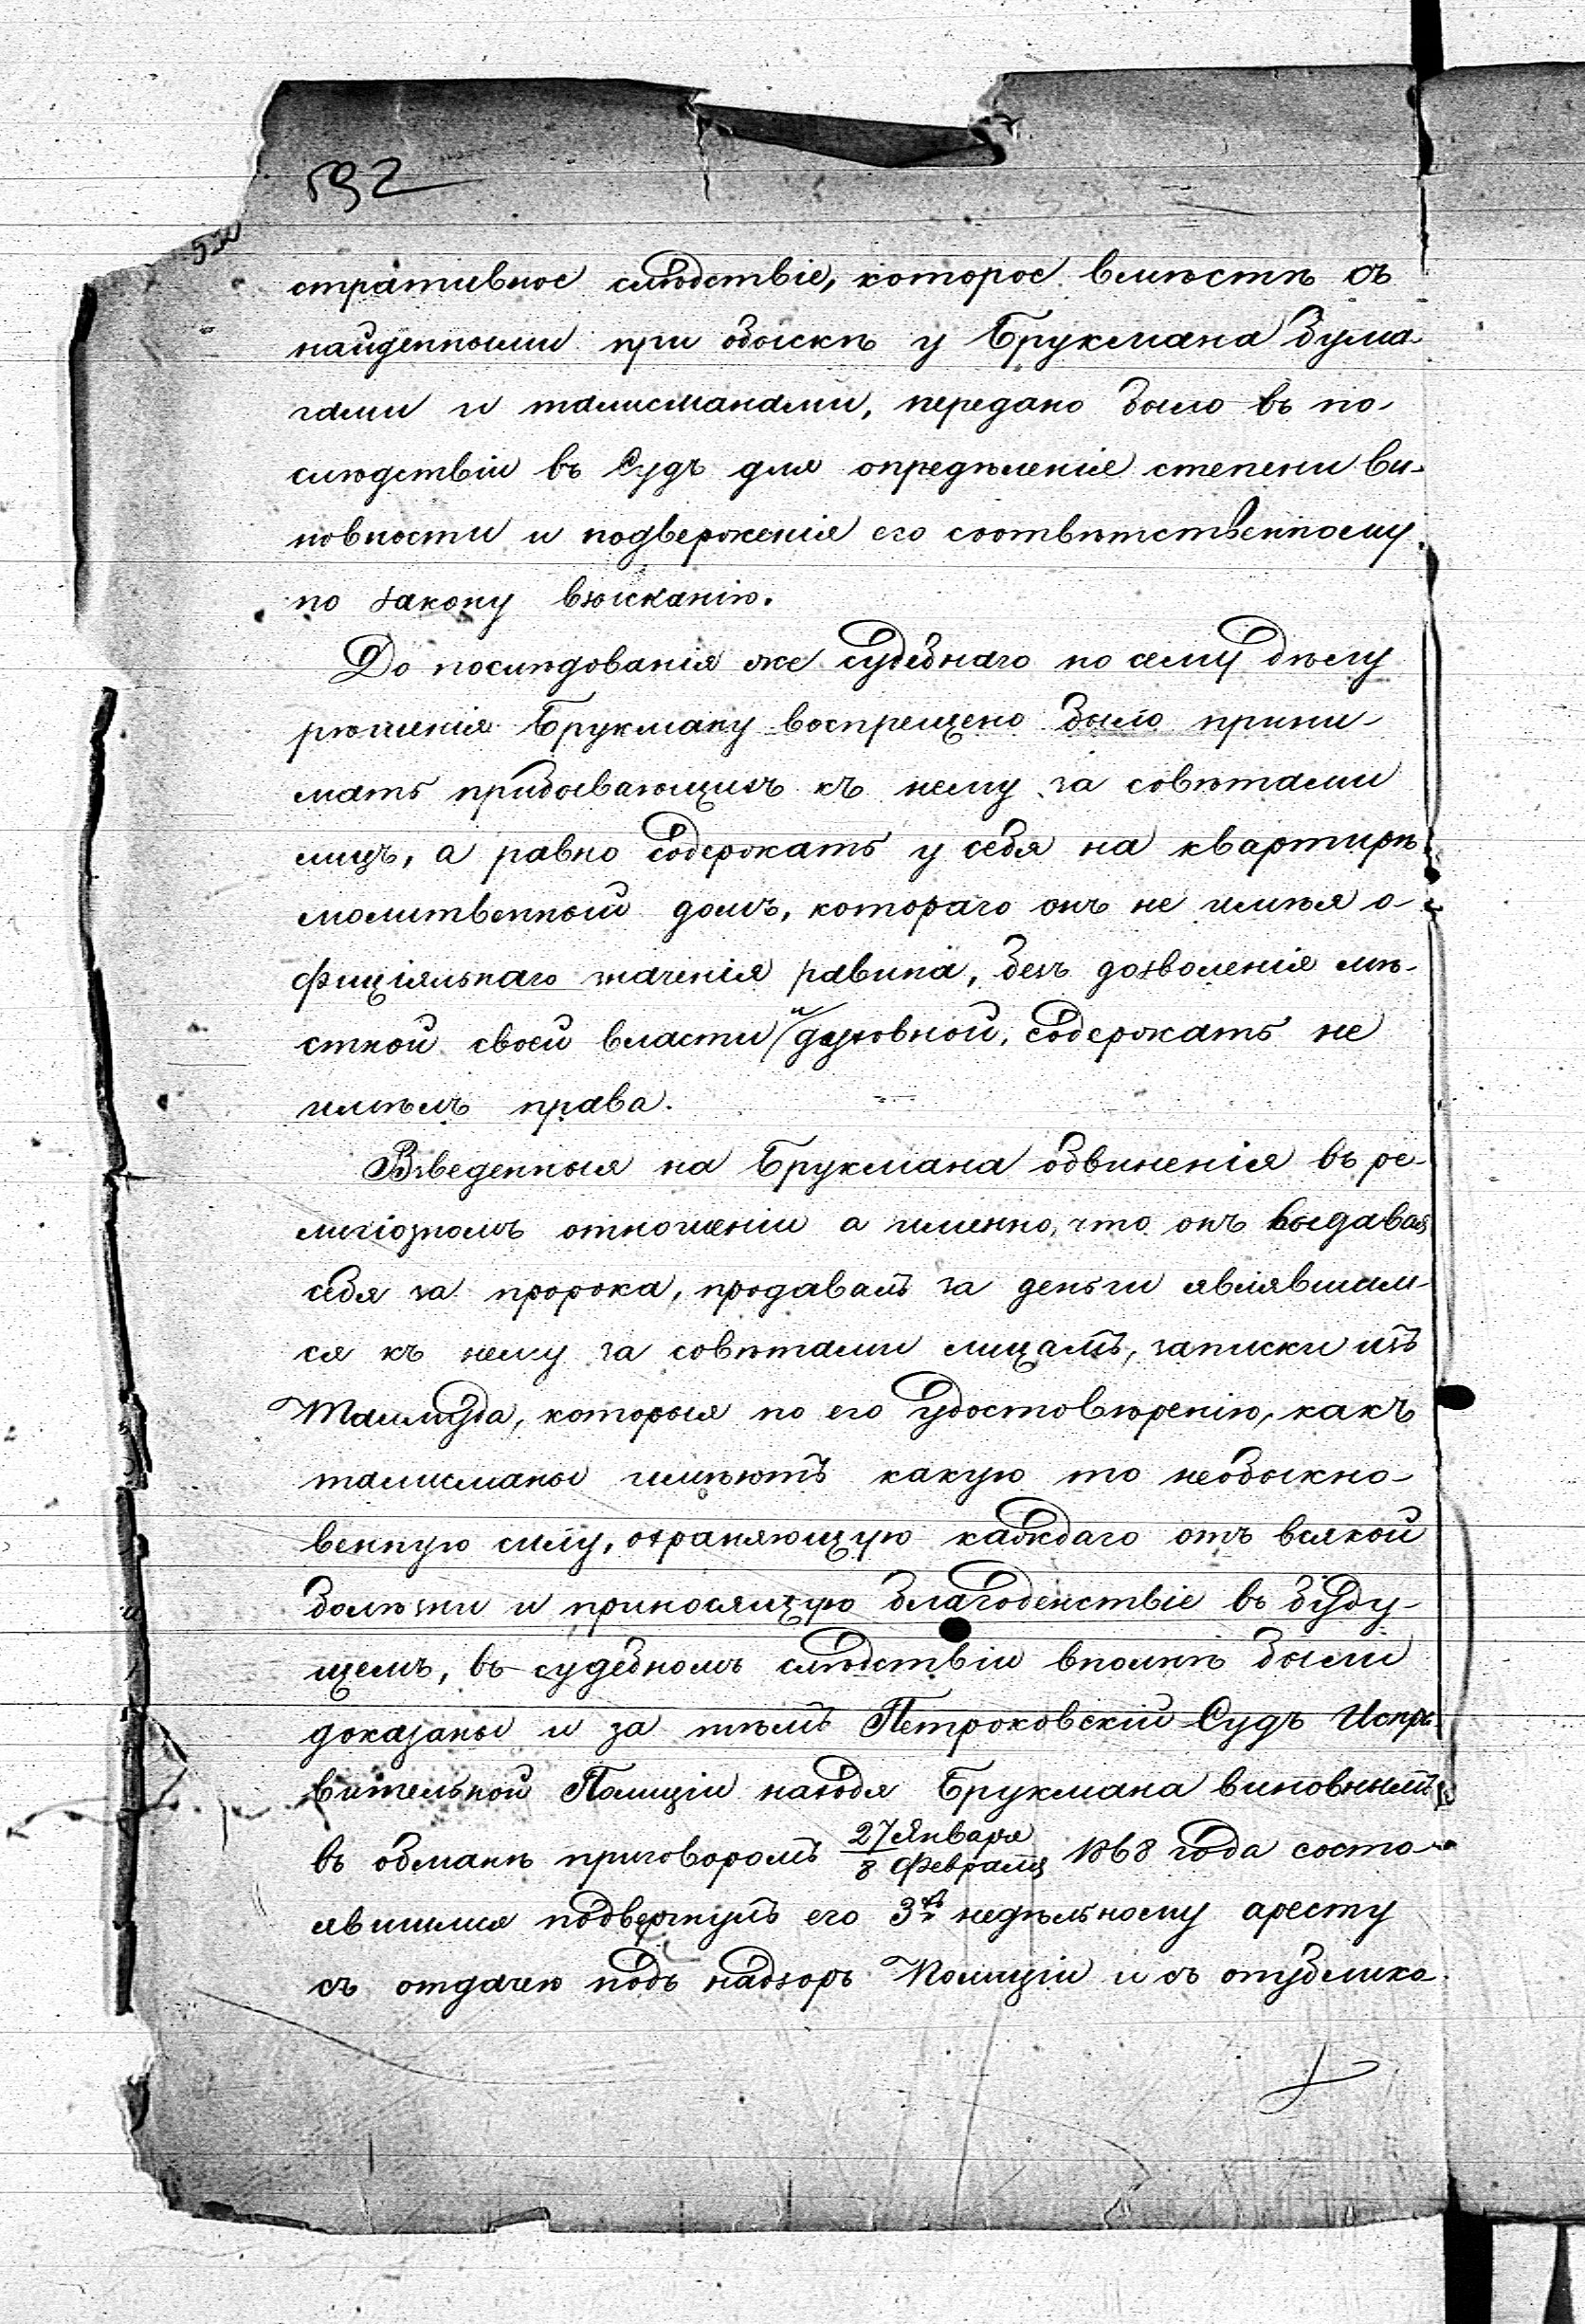 592
стративное слѣдствіе, которое вмѣстѣ съ
найденными при обыскѣ у Брукмана бума-
гами и талисманами, передано было въ по-
слѣдствіи въ Судъ для опредѣленіе степени ви-
новности и подверженія его соотвѣтственному
по закону взысканію.
До послѣдованія же судебнаго по сему дѣлу
рѣшенія Брукману воспрещено было прини-
мать прибывающихъ къ нему за совѣтами
лицъ, а равно содержать у себя на квартирѣ
молитвенный домъ, котораго онъ не имѣя о-
фиціяльнаго значенія равина, безъ дозволенія мѣ-
стной своей власти и духовной, содержать не
имѣлъ права.
Взведенныя на Брукмана обвиненія въ ре-
лигіозномъ отношеніи а именно, что онъ выдавая
себя за пророка, продавалъ за деньги являвшим-
ся къ нему за совѣтами лицамъ, записки изъ
Талмуда, которыя по его удостовѣренію, какъ
талисманы имѣютъ какую то необыкно-
венную силу, охраняющую каждаго отъ всякой
болѣзни и приносящую благоденствіе въ буду-
щемъ, въ судебномъ слѣдствіи вполнѣ были
доказаны и за тѣмъ Петроковскій Судъ Испра
вительной Полиціи находя Брукмана виновнымъ
въ обманѣ приговоромъ 27 Января / 8 Февраля 1868 года состо-
явшимся подвергнулъ его 3хъ недѣльному аресту
съ отдачею подъ надзоръ Полиціи и съ опублика-